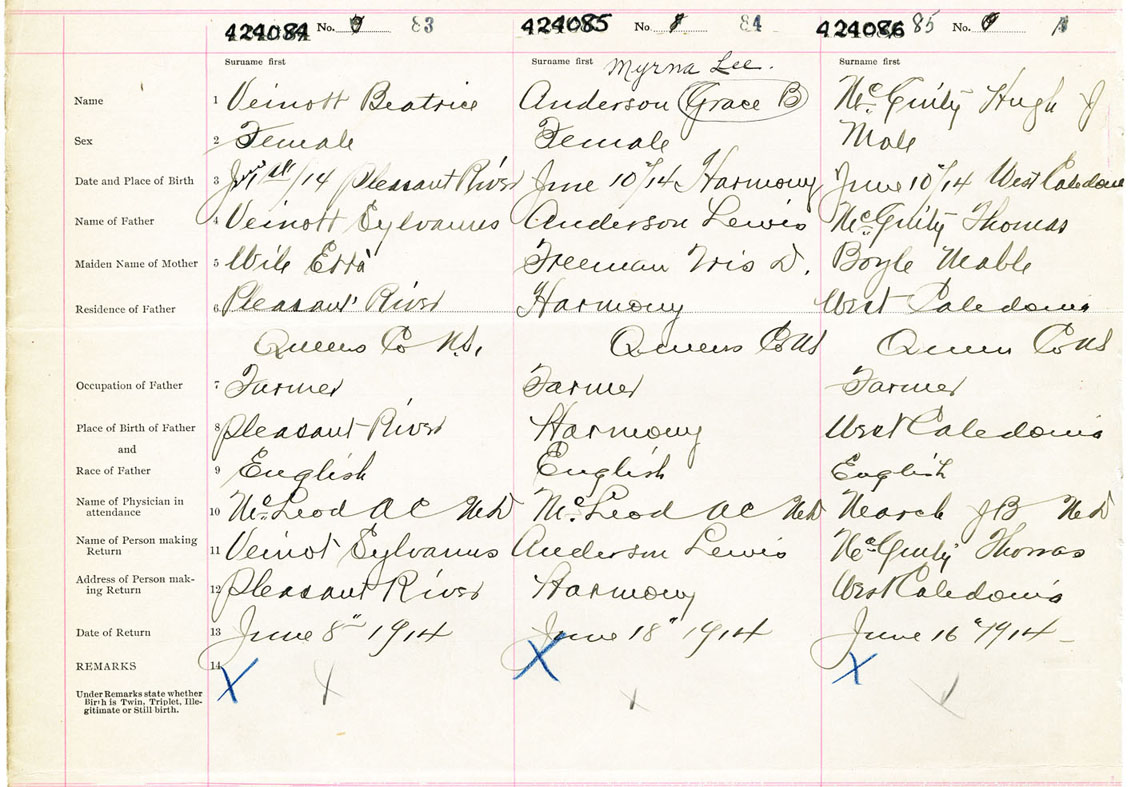 424084 No. 83 424085 No. 8 84 424086 85 No.
Surname first Surname first Myrna Lee. Surname first
Name 1 Veinott Beatrice Anderson (Grace B) McGinty Hugh J
Sex 2 Female Female Male
Date and Place of Birth 3 /14 Pleasant River June 10"/14 Harmony June 10"/14 West Caledonia
Name of Father 4 Veinott Sylvanus Anderson Lewis McGinty Thomas
Maiden Name of Mother 5 Wile Etta Freeman Iris D. Boyle Mable
Residence of Father 6 Pleasant River Harmony West Caledonia
Queens Co N.S. Queens Co NS Queens Co NS
Occupation of Father 7 Farmer Farmer Farmer
Place of Birth of Father 8 Pleasant River Harmony West Caledonia
and
Race of Father 9 English English English
Name of Physician in
attendance 10 McLeod A C MD McLeod A C MD March J B MD
Name of Person making
Return 11 Veinot Sylvanus Anderson Lewis McGinty Thomas
Address of Person mak-
ing Return 12 Pleasant River Harmony West Caledonia
Date of Return 13 June 8" 1914 June 18" 1914 June 16" 1914
REMARKS 14 X X X
Under Remarks state whether
Birth is Twin, Triplet, Ille-
gitimate or Still birth.